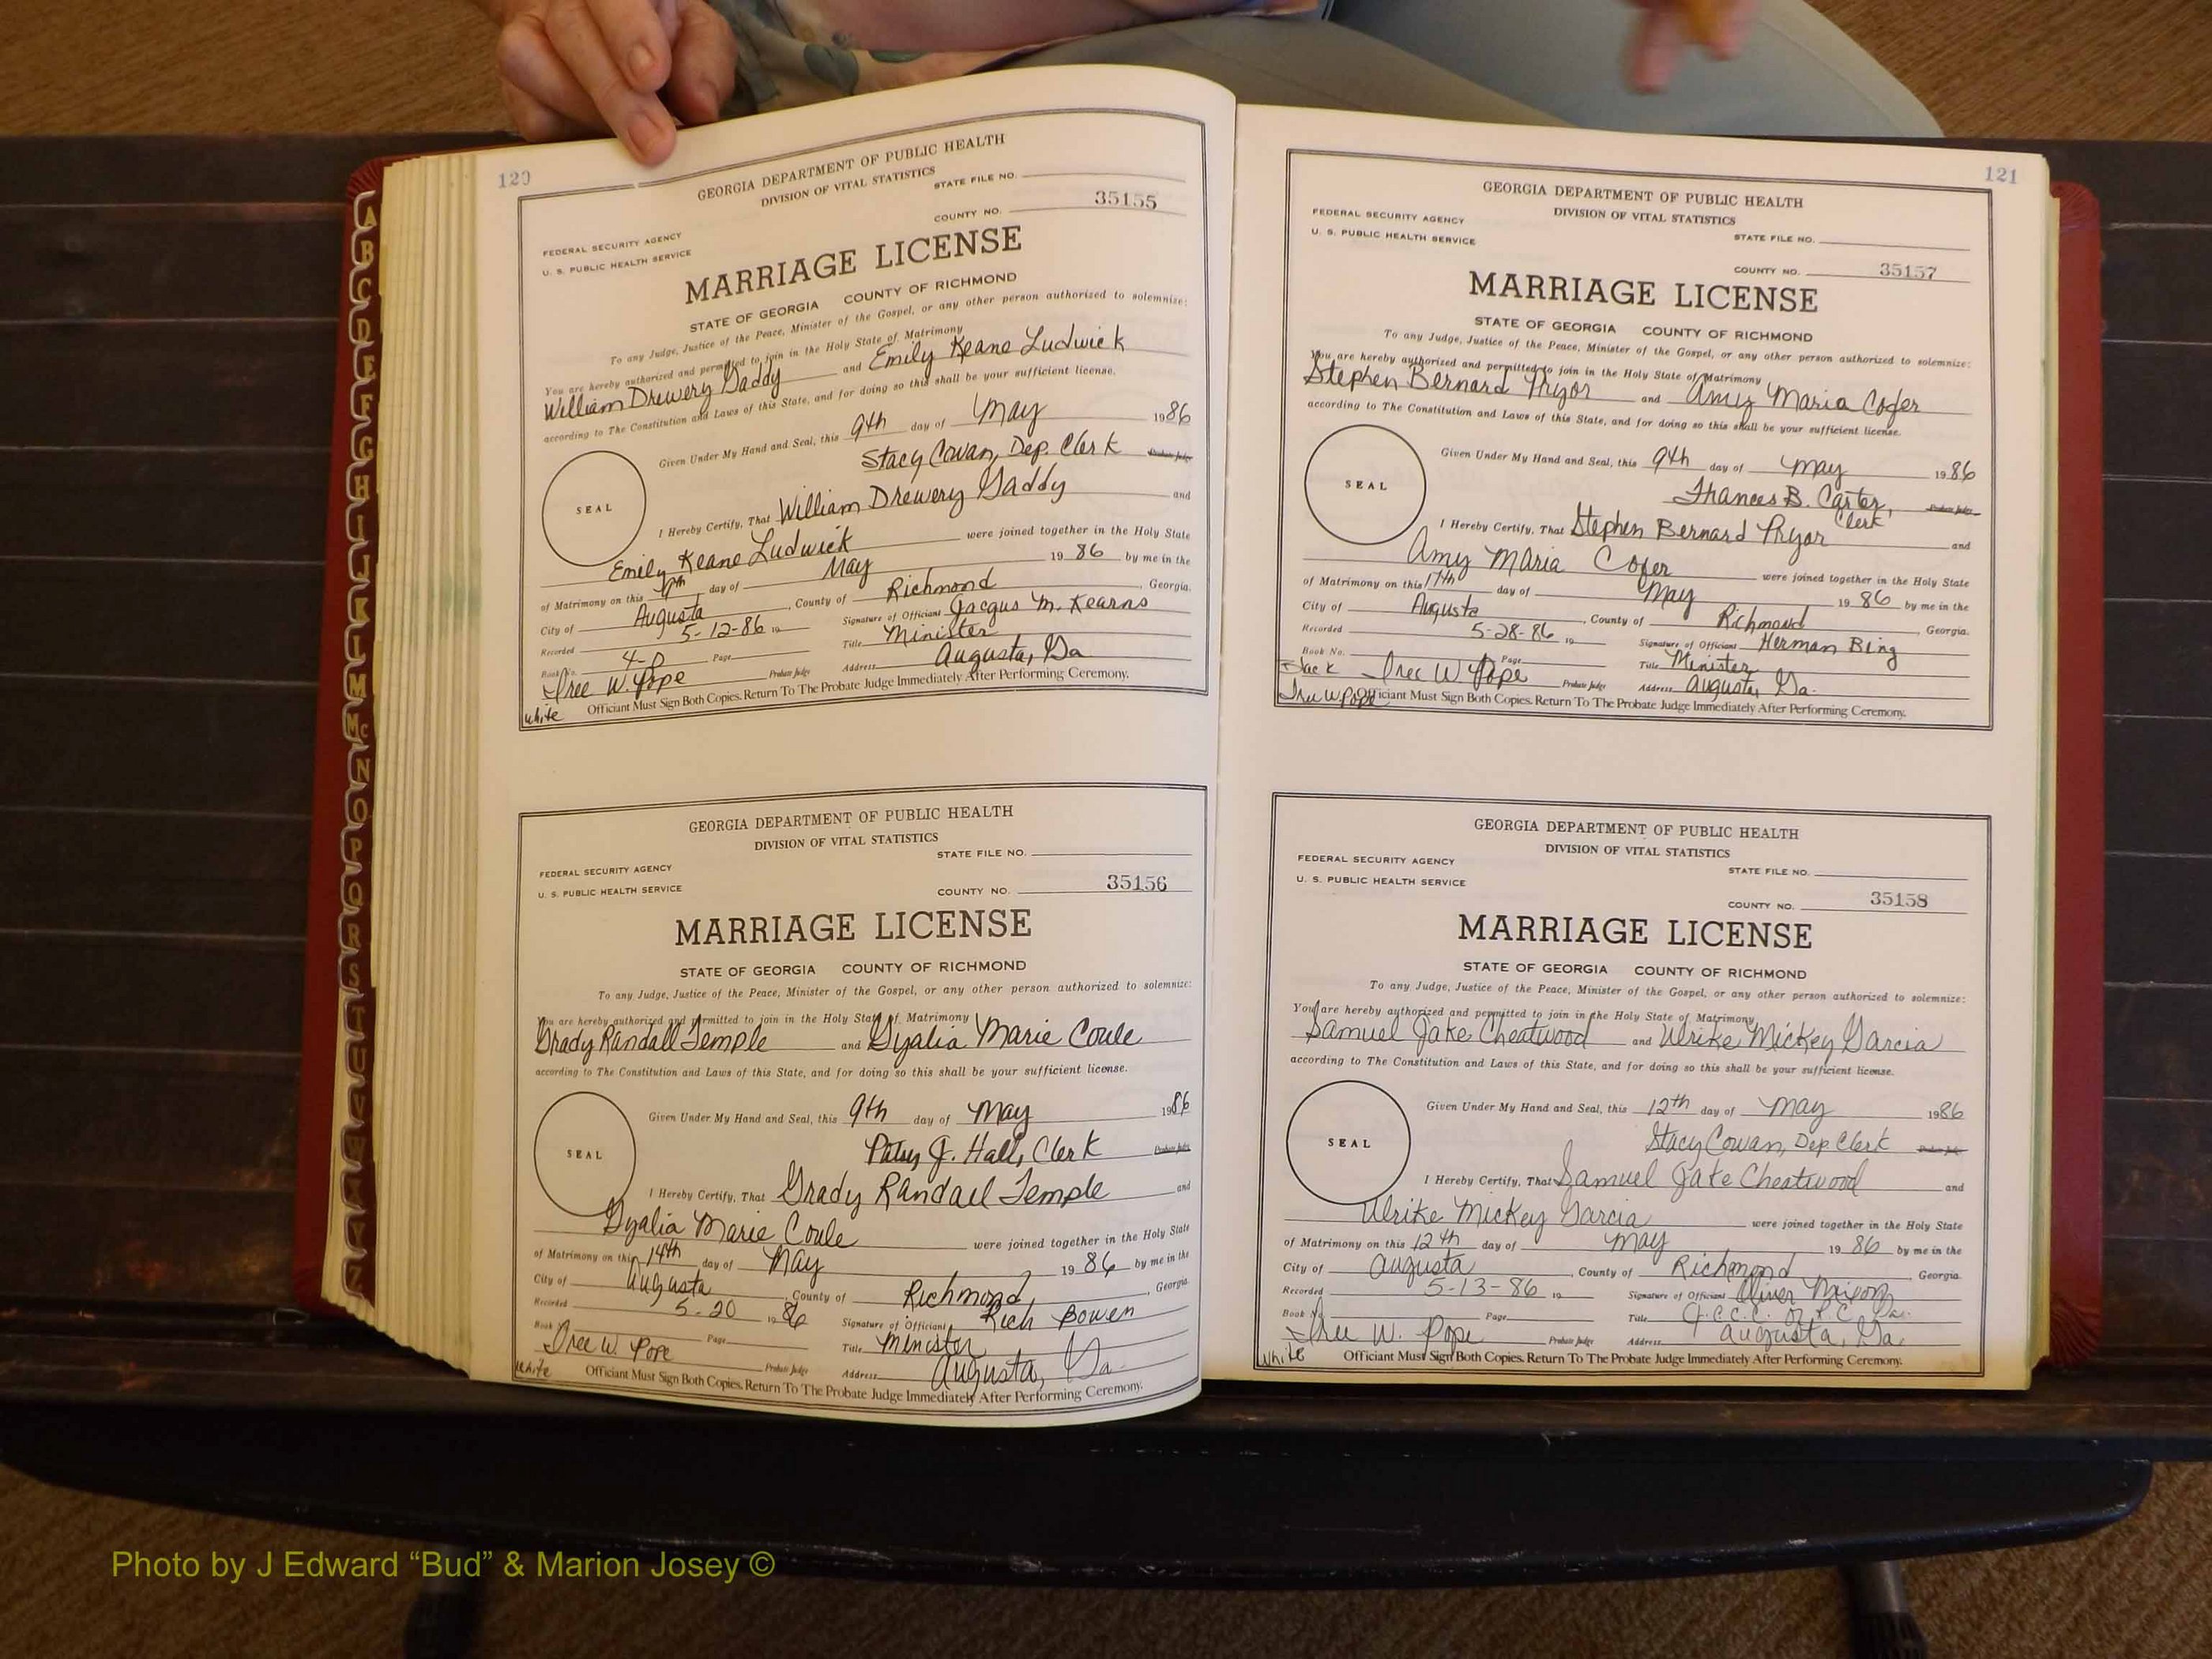 A
B
C
D
E
F
G
H
I
J
K
L
M
Mc
N
O
P
Q
R
S
T
U
V
W
X
Y
Z
120
GEORGIA DEPARTMENT OF PUBLIC HEALTH
DIVISION OF VITAL STATISTICS
STATE FILE NO.
COUNTY NO. 35155
FEDERAL SECURITY AGENCY
U. S. PUBLIC HEALTH SERVICE
MARRIAGE LICENSE
STATE OF GEORGIA COUNTY OF RICHMOND
To any Judge, Justice of the Peace, Minister of the Gospel, or any other person authorized to solemnize:
You are hereby authorized and permitted to join in the Holy State of Matrimony
William Drewery Gaddy and Emily Keane Ludwick
according to The Constitution and Laws of this State, and for doing so this shall be your sufficient license.
Given Under My Hand and Seal, this 9th day of May 1986
Stacy Cowan, Dep. Clerk Probate Judge
SEAL
I Hereby Certify, That William Drewery Gaddy and
Emily Keane Ludwick were joined together in the Holy State
of Matrimony on this day of May 19 86 by me in the
City of Augusta, County of Richmond, Georgia.
Recorded 5-12-86 19 Signature of Officiant M. Kearns
Book No. 4-0 Page Title Minister
Iree W. Pope Probate Judge Address Augusta, Ga
White Officiant Must Sign Both Copies. Return To The Probate Judge Immediately After Performing Ceremony.
GEORGIA DEPARTMENT OF PUBLIC HEALTH
DIVISION OF VITAL STATISTICS
STATE FILE NO.
FEDERAL SECURITY AGENCY
U. S. PUBLIC HEALTH SERVICE
COUNTY NO. 35156
MARRIAGE LICENSE
STATE OF GEORGIA COUNTY OF RICHMOND
To any Judge, Justice of the Peace, Minister of the Gospel, or any other person authorized to solemnize:
You are hereby authorized and permitted to join in the Holy State of Matrimony
Grady Randall Temple and Dyalia Marie Coule
according to The Constitution and Laws of this State, and for doing so this shall be your sufficient license.
Given Under My Hand and Seal, this 9th day of May 1986
Patsy J. Hall, Clerk Probate Judge
SEAL
I Hereby Certify, That Grady Randall Temple and
Dyalia Marie Coule were joined together in the Holy State
of Matrimony on this 14th day of May 19 86 by me in the
City of Augusta, County of Richmond, Georgia.
Recorded 5-20 19 86 Signature of Officiant Rich Bowen
Book Page Title Minister
Iree W. Pope Probate Judge Address Augusta, Ga
White Officiant Must Sign Both Copies. Return To The Probate Judge Immediately After Performing Ceremony.
121
GEORGIA DEPARTMENT OF PUBLIC HEALTH
DIVISION OF VITAL STATISTICS
FEDERAL SECURITY AGENCY
U. S. PUBLIC HEALTH SERVICE
STATE FILE NO.
COUNTY NO. 35157
MARRIAGE LICENSE
STATE OF GEORGIA COUNTY OF RICHMOND
To any Judge, Justice of the Peace, Minister of the Gospel, or any other person authorized to solemnize:
You are hereby authorized and permitted to join in the Holy State of Matrimony
Stephen Bernard Pryor and Amy Maria Cofer
according to The Constitution and Laws of this State, and for doing so this shall be your sufficient license.
Given Under My Hand and Seal, this 9th day of May 1986
Frances B. Carter, Clerk Probate Judge
SEAL
I Hereby Certify, That Stephen Bernard Pryor and
Amy Maria Cofer were joined together in the Holy State
of Matrimony on this 17th day of May 19 86 by me in the
City of Augusta, County of Richmond, Georgia.
Recorded 5-28-86 19 Signature of Officiant Herman Bing
Book No. Page Title Minister
Iree W. Pope Probate Judge Address Augusta, Ga.
Iree W Pope Officiant Must Sign Both Copies. Return To The Probate Judge Immediately After Performing Ceremony.
GEORGIA DEPARTMENT OF PUBLIC HEALTH
DIVISION OF VITAL STATISTICS
FEDERAL SECURITY AGENCY
U. S. PUBLIC HEALTH SERVICE
STATE FILE NO.
COUNTY NO. 35158
MARRIAGE LICENSE
STATE OF GEORGIA COUNTY OF RICHMOND
To any Judge, Justice of the Peace, Minister of the Gospel, or any other person authorized to solemnize:
You are hereby authorized and permitted to join in the Holy State of Matrimony
Samuel Jake Cheatwood and Ulrike Mickey Garcia
according to The Constitution and Laws of this State, and for doing so this shall be your sufficient license.
Given Under My Hand and Seal, this 12th day of May 1986
Stacy Cowan, Dep. Clerk Probate Judge
SEAL
I Hereby Certify, That Samuel Jake Cheatwood and
Ulrike Mickey Garcia were joined together in the Holy State
of Matrimony on this 12th day of May 19 86 by me in the
City of Augusta, County of Richmond, Georgia.
Recorded 5-13-86 19 Signature of Officiant Oliver Mixon
Book No. Page Title
Iree W. Pope Probate Judge Address Augusta, Ga
White Officiant Must Sign Both Copies. Return To The Probate Judge Immediately After Performing Ceremony.
Photo by J Edward “Bud” & Marion Josey ©